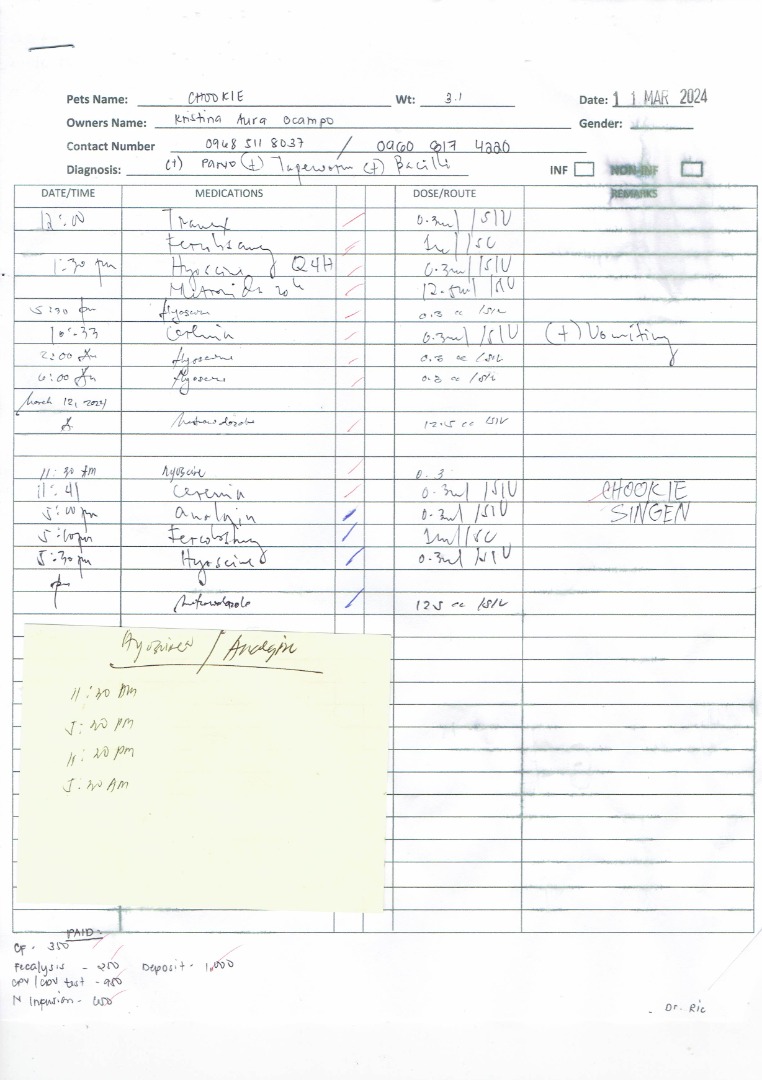 Pets Name: CHOOKIE Wt: 3.1 Date: 11 MAR 2024
Owners Name: Kristina Aura Ocampo Gender:
Contact Number 0968 511 8037 / 0960 817 4220
Diagnosis: (+) (+) Tapeworm (+) Bacilli INF NON-INF
DATE/TIME MEDICATIONS DOSE/ROUTE REMARKS
12:00 Tranex 0.3ml /SIV
1ml /SC
1:30 pm Hyoscine Q4H 0.3ml /SIV
12.5ml /SIV
5:30 pm Hyoscine 0.3 cc /SIV
10:33 Cerenia 0.3ml /SIV (+) Vomiting
2:00 Am Hyoscine 0.3 cc /SIV
6:00 Am Hyoscine 0.3 cc /SIV
March 12, 2024
12.5 cc SIV
11:30 AM Hyoscine 0.3
11:41 Cerenia 0.3ml /SIV CHOOKIE
5:00 pm Analgin 0.3ml /SIV SINGEN
5:10 pm 1ml/SC
5:30 pm Hyoscine 0.3ml /SIV
pm
12.5 cc /SIV
/ Analgin
11:30 AM
5:30 PM
11:30 PM
5:30 AM
PAID:
CF - 350
Fecalysis - 250 Deposit - 1,000
CPV/CDV test - 950
N Infusion - 650
Dr. Ric